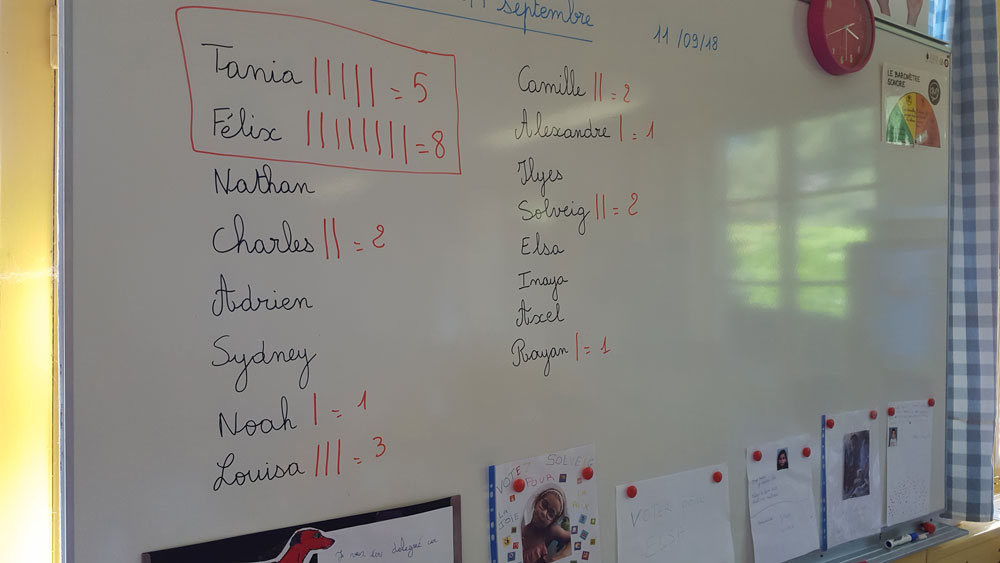 septembre
11/09/18
Tania ||||| = 5
Félix |||||||| = 8
Nathan
Charles || = 2
Adrien
Sydney
Noah | = 1
Louisa ||| = 3
Camille || = 2
Alexandre | = 1
Ilyes
Solveig || = 2
Elsa
Inaya
Axel
Rayan | = 1
LE BAROMÈTRE
SONORE
VOTEZ SOLVEIG
POUR
VOTER POUR
ELSA